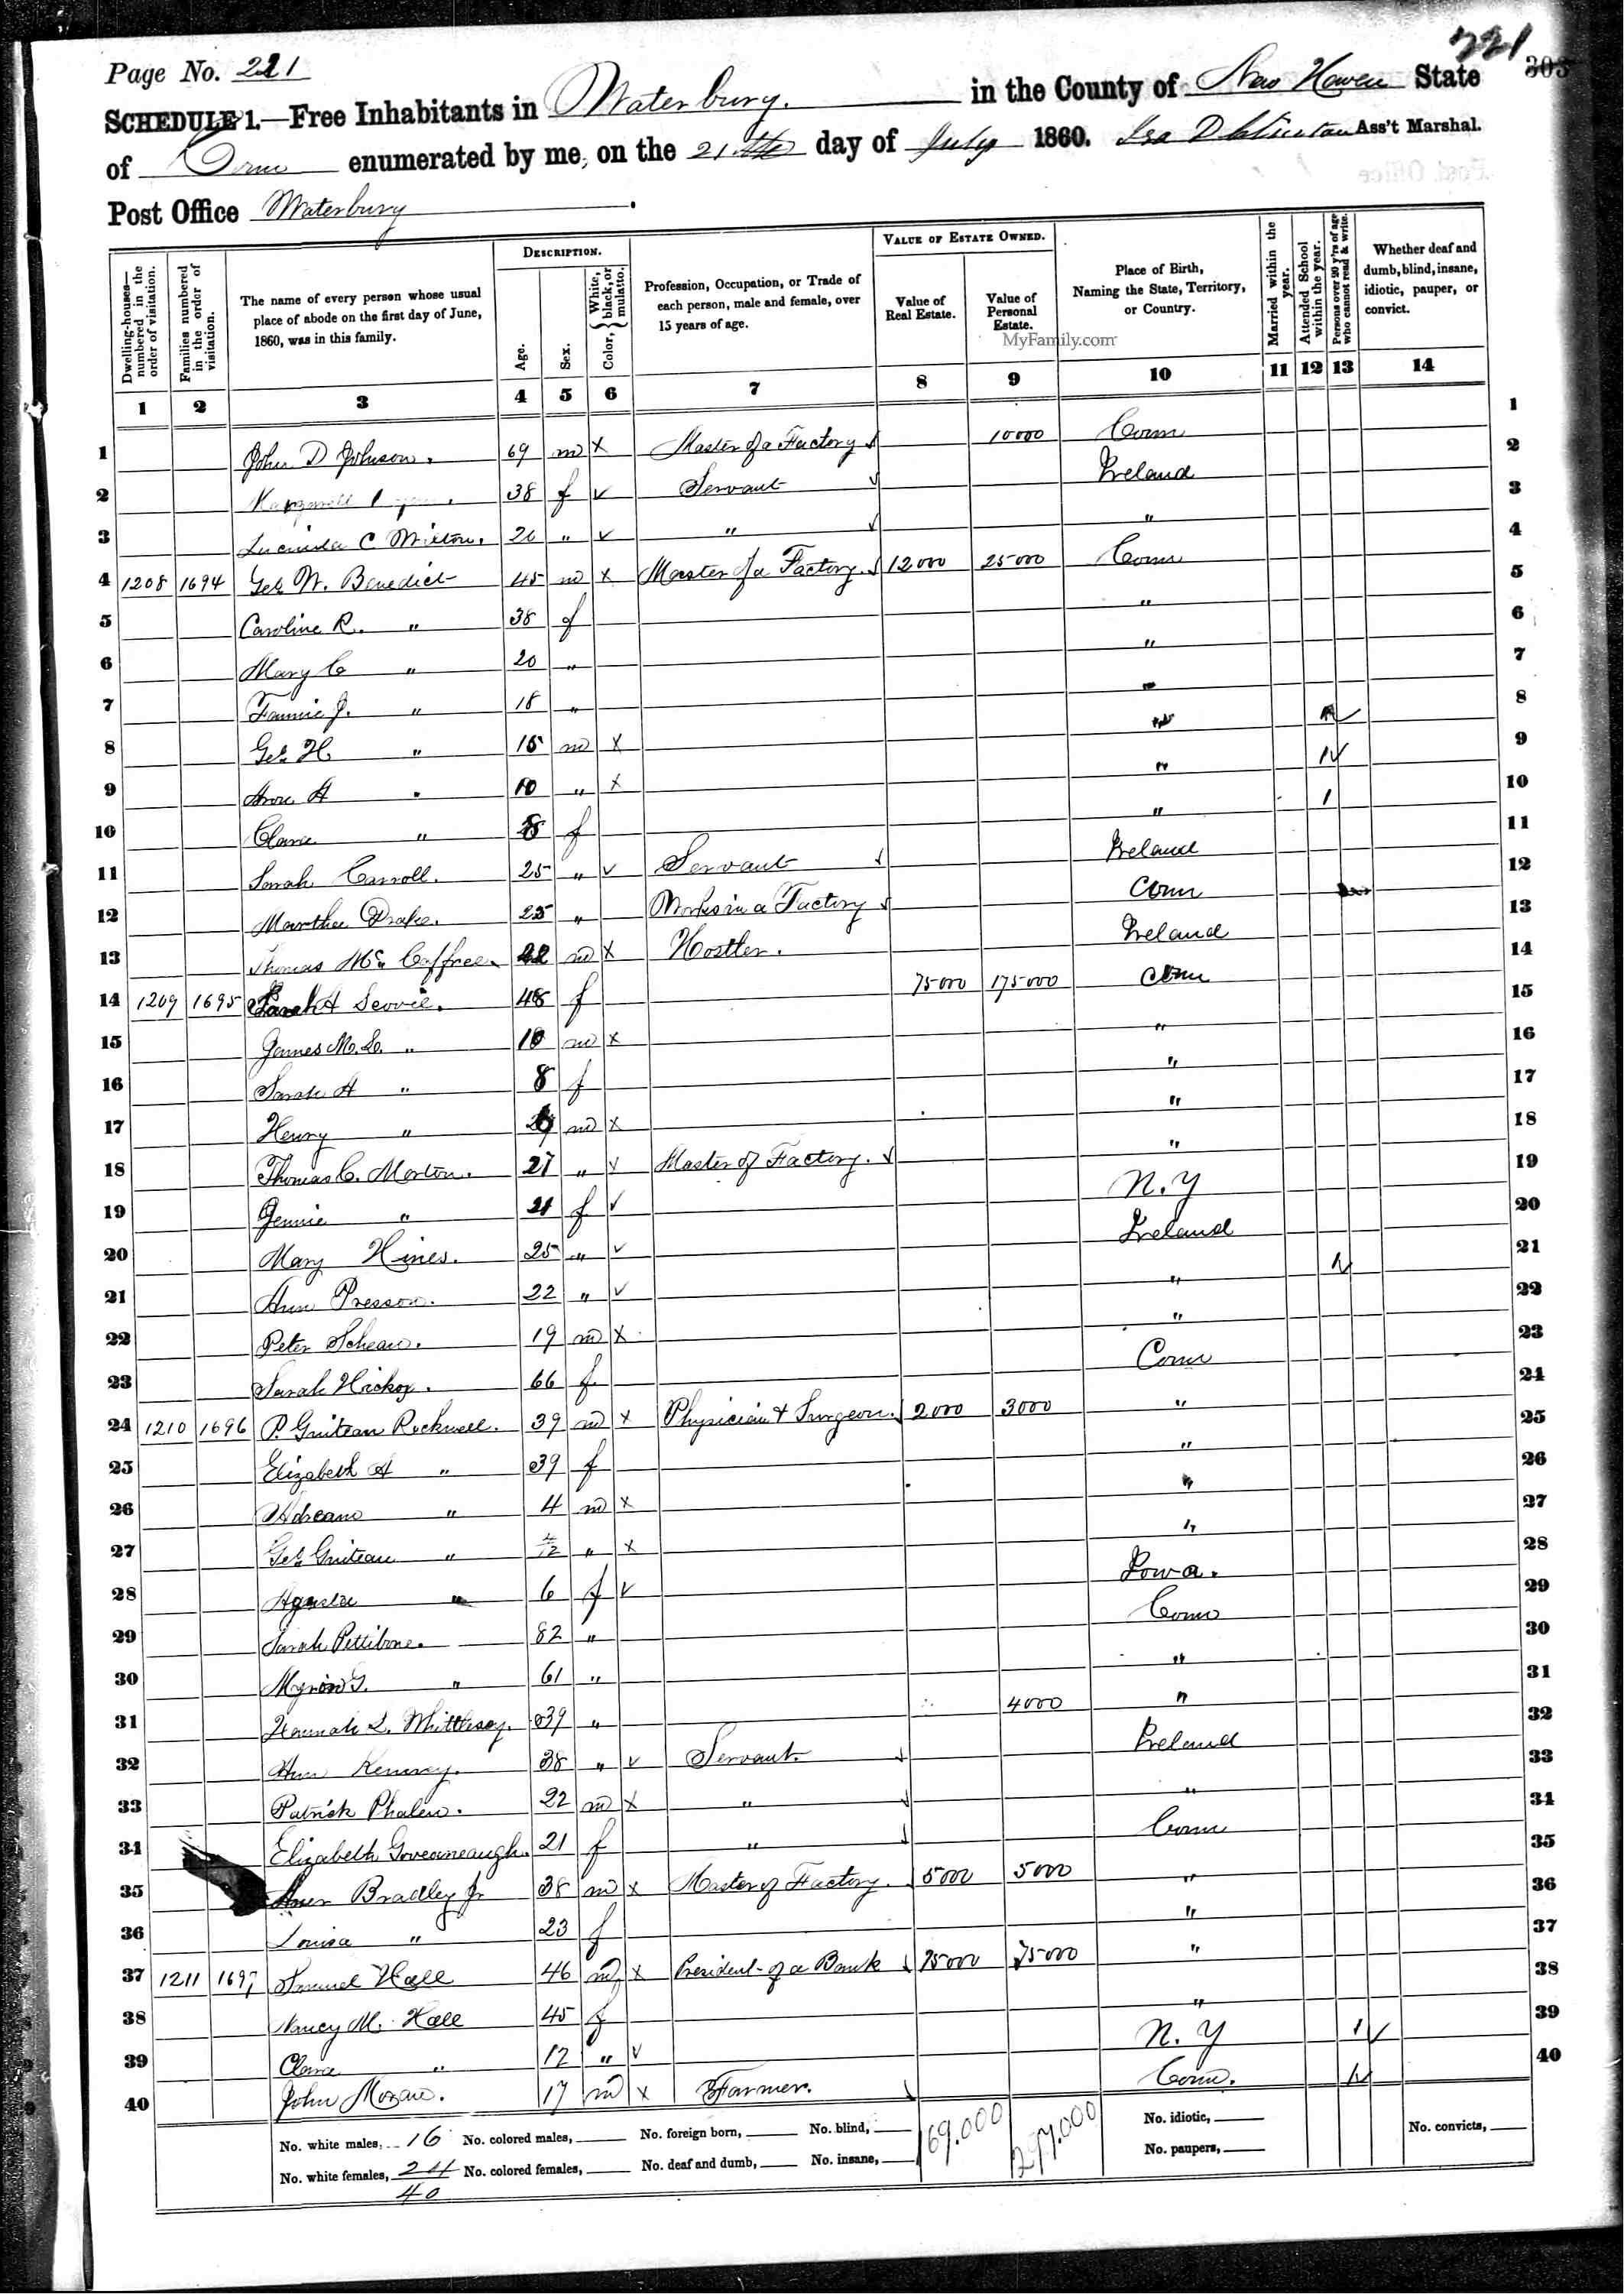 221
Page No. 221
303
SCHEDULE 1.—Free Inhabitants in Waterbury. in the County of New Haven State
of Conn enumerated by me, on the 21st day of July 1860. Ass't Marshal.
Post Office Waterbury
DESCRIPTION. VALUE OF ESTATE OWNED.
Dwelling-houses—numbered in the order of visitation. Families numbered in the order of visitation. The name of every person whose usual place of abode on the first day of June, 1860, was in this family. Age. Sex. Color, { White, black, or mulatto. Profession, Occupation, or Trade of each person, male and female, over 15 years of age. Value of Real Estate. Value of Personal Estate. Place of Birth, Naming the State, Territory, or Country. Married within the year. Attended School within the year. Persons over 20 y'rs of age who cannot read & write. Whether deaf and dumb, blind, insane, idiotic, pauper, or convict.
MyFamily.com
1 2 3 4 5 6 7 8 9 10 11 12 13 14
1 John D Johnson. 69 m x Master of a Factory 10000 Conn 1
2 38 f v Servant Ireland 2
3 Lucinda C 26 " v " " 3
4 1208 1694 Geo W. Benedict 45 m x Master of a Factory. 12000 25000 Conn 4
5 Caroline R. " 38 f " 5
6 Mary C " 20 " " 6
7 Fannie J. " 18 " " 7
8 Geo H " 15 m x " 8
9 A " 10 " x " 1 9
10 Clara " 8 f " 1 10
11 Sarah Carroll. 25 " v Servant Ireland 11
12 Martha Drake. 25 " Works in a Factory Conn 12
13 Thomas Mc Caffree. 22 m x Hostler. Ireland 13
14 1209 1695 Sarah A Scovil. 48 f 75000 175000 Conn 14
15 James M. L. " 10 m x " 15
16 Sarah A " 8 f " 16
17 Henry " m x " 17
18 Thomas C. Morton. 27 " v Master of Factory. " 18
19 Jennie " 21 f v N.Y 19
20 Mary Hines. 25 " v Ireland 20
21 Ann Presson. 22 " v " 21
22 Peter 19 m x " 22
23 Sarah Hickox. 66 f Conn 23
24 1210 1696 P. Guiteau Rockwell. 39 m x Physician & Surgeon. 2000 3000 " 24
25 Elizabeth A " 39 f " 25
26 " 4 m x " 26
27 Geo Guiteau " " x " 27
28 " 6 f v Iowa. 28
29 Sarah Pettibone. 82 " Conn 29
30 " 61 " " 30
31 Hannah L. Whittlesey. 39 " 4000 " 31
32 Ann 38 " v Servant. Ireland 32
33 Patrick Phalen. 22 m x " " 33
34 Elizabeth 21 f " Conn 34
35 Bradley Jr 38 m x Master of Factory. 5000 5000 " 35
36 Louisa " 23 f " 36
37 1211 1697 Samuel Hall 46 m x President of a Bank 75000 75000 " 37
38 Nancy M. Hall 45 f " 38
39 Clara " 12 " v N.Y 1 39
40 John 17 m x Farmer. Conn. 1 40
No. white males, 16 No. colored males, No. foreign born, No. blind, 169.000 297.000 No. idiotic, No. convicts,
No. white females, 24 No. colored females, No. deaf and dumb, No. insane, No. paupers,
40